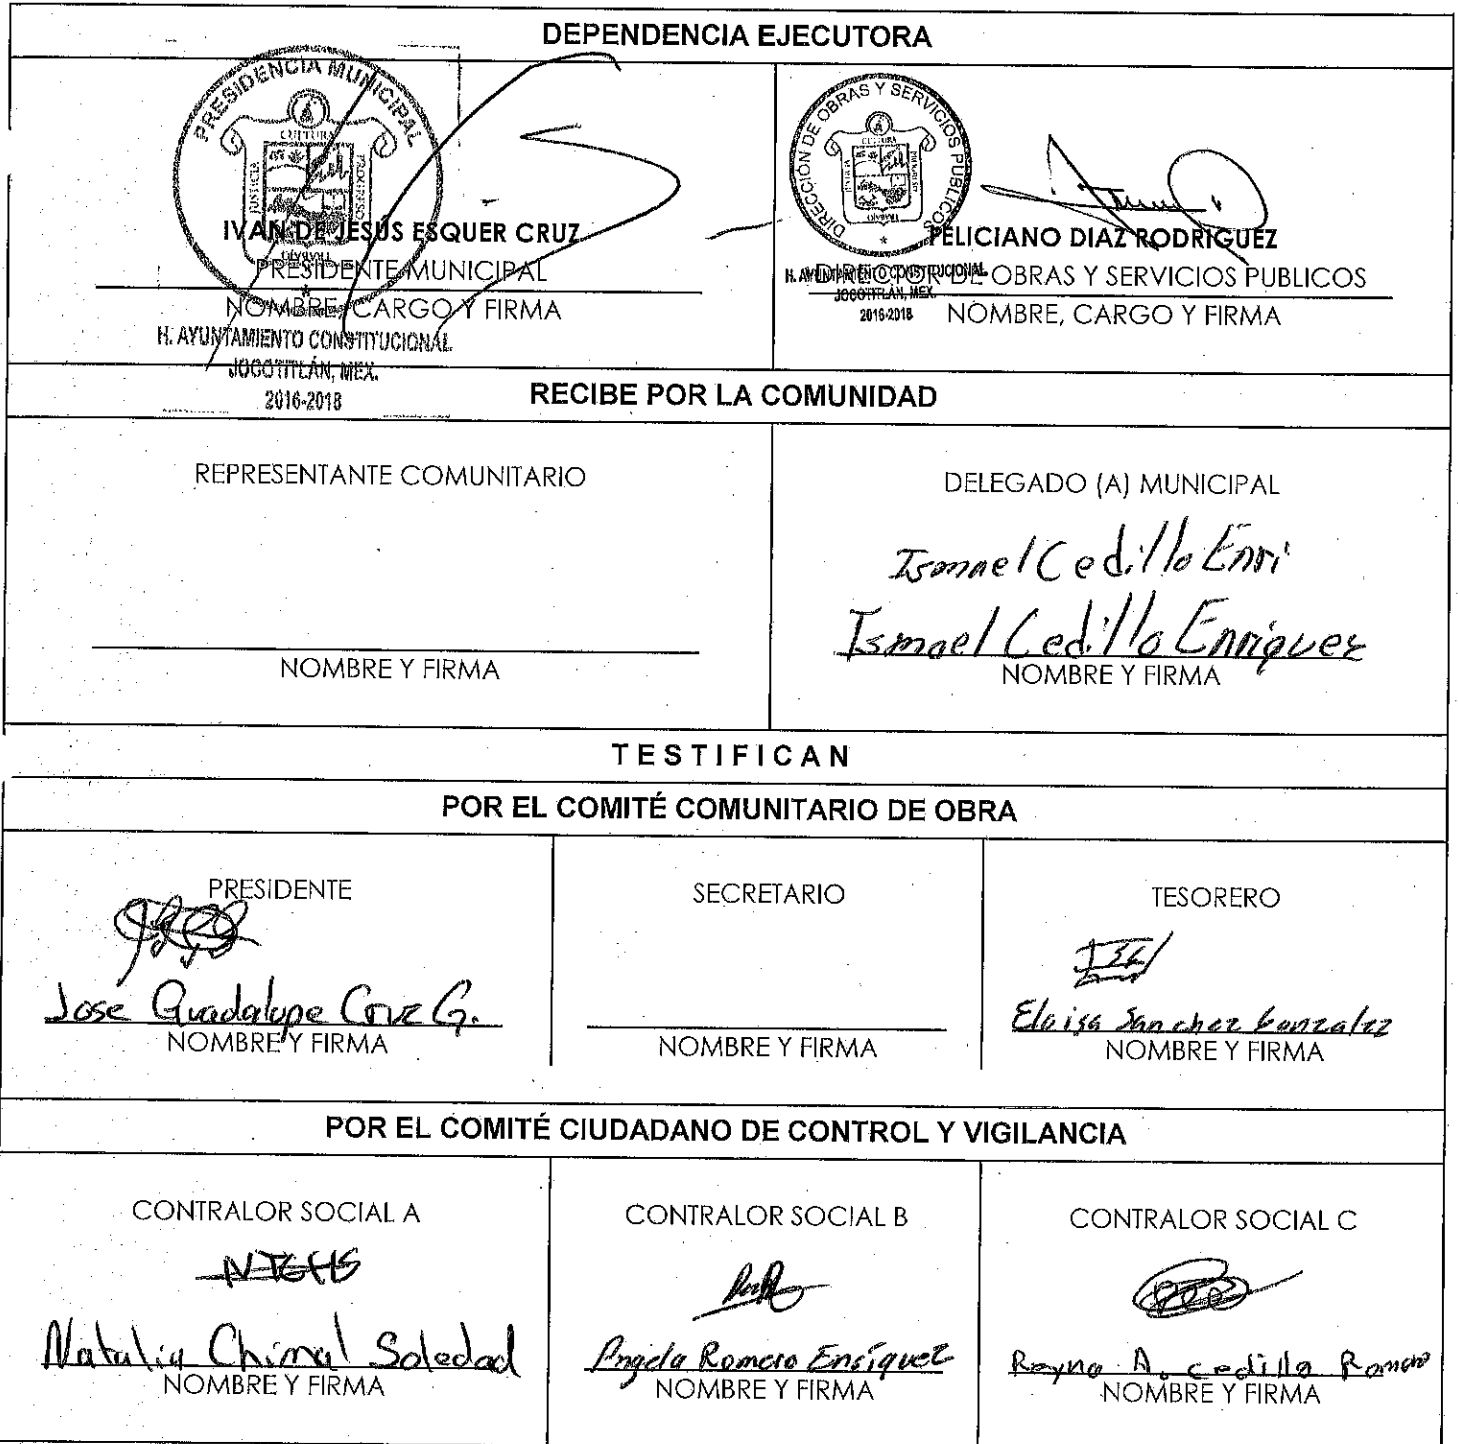 DEPENDENCIA EJECUTORA
PRESIDENCIA MUNICIPAL
CULTURA
JUSTICIA
PROGRESO
TRABAJO
IVAN DE JESÚS ESQUER CRUZ
PRESIDENTE MUNICIPAL
NOMBRE, CARGO Y FIRMA
H. AYUNTAMIENTO CONSTITUCIONAL
JOCOTITLÁN, MEX.
2016-2018
DIRECCIÓN DE OBRAS Y SERVICIOS PUBLICOS
CULTURA
TRABAJO
FELICIANO DIAZ RODRIGUEZ
DIRECTOR DE OBRAS Y SERVICIOS PUBLICOS
H. AYUNTAMIENTO CONSTITUCIONAL
JOCOTITLAN, MEX.
2016-2018
NOMBRE, CARGO Y FIRMA
RECIBE POR LA COMUNIDAD
REPRESENTANTE COMUNITARIO
NOMBRE Y FIRMA
DELEGADO (A) MUNICIPAL
Ismael Cedillo Enri
Ismael Cedillo Enriquez
NOMBRE Y FIRMA
TESTIFICAN
POR EL COMITÉ COMUNITARIO DE OBRA
PRESIDENTE
Jose Guadalupe Cruz G.
NOMBRE Y FIRMA
SECRETARIO
NOMBRE Y FIRMA
TESORERO
Eloisa Sanchez Gonzalez
NOMBRE Y FIRMA
POR EL COMITÉ CIUDADANO DE CONTROL Y VIGILANCIA
CONTRALOR SOCIAL A
Natalia Chimal Soledad
NOMBRE Y FIRMA
CONTRALOR SOCIAL B
Angela Romero Enriquez
NOMBRE Y FIRMA
CONTRALOR SOCIAL C
Reyna A. cedillo Romero
NOMBRE Y FIRMA